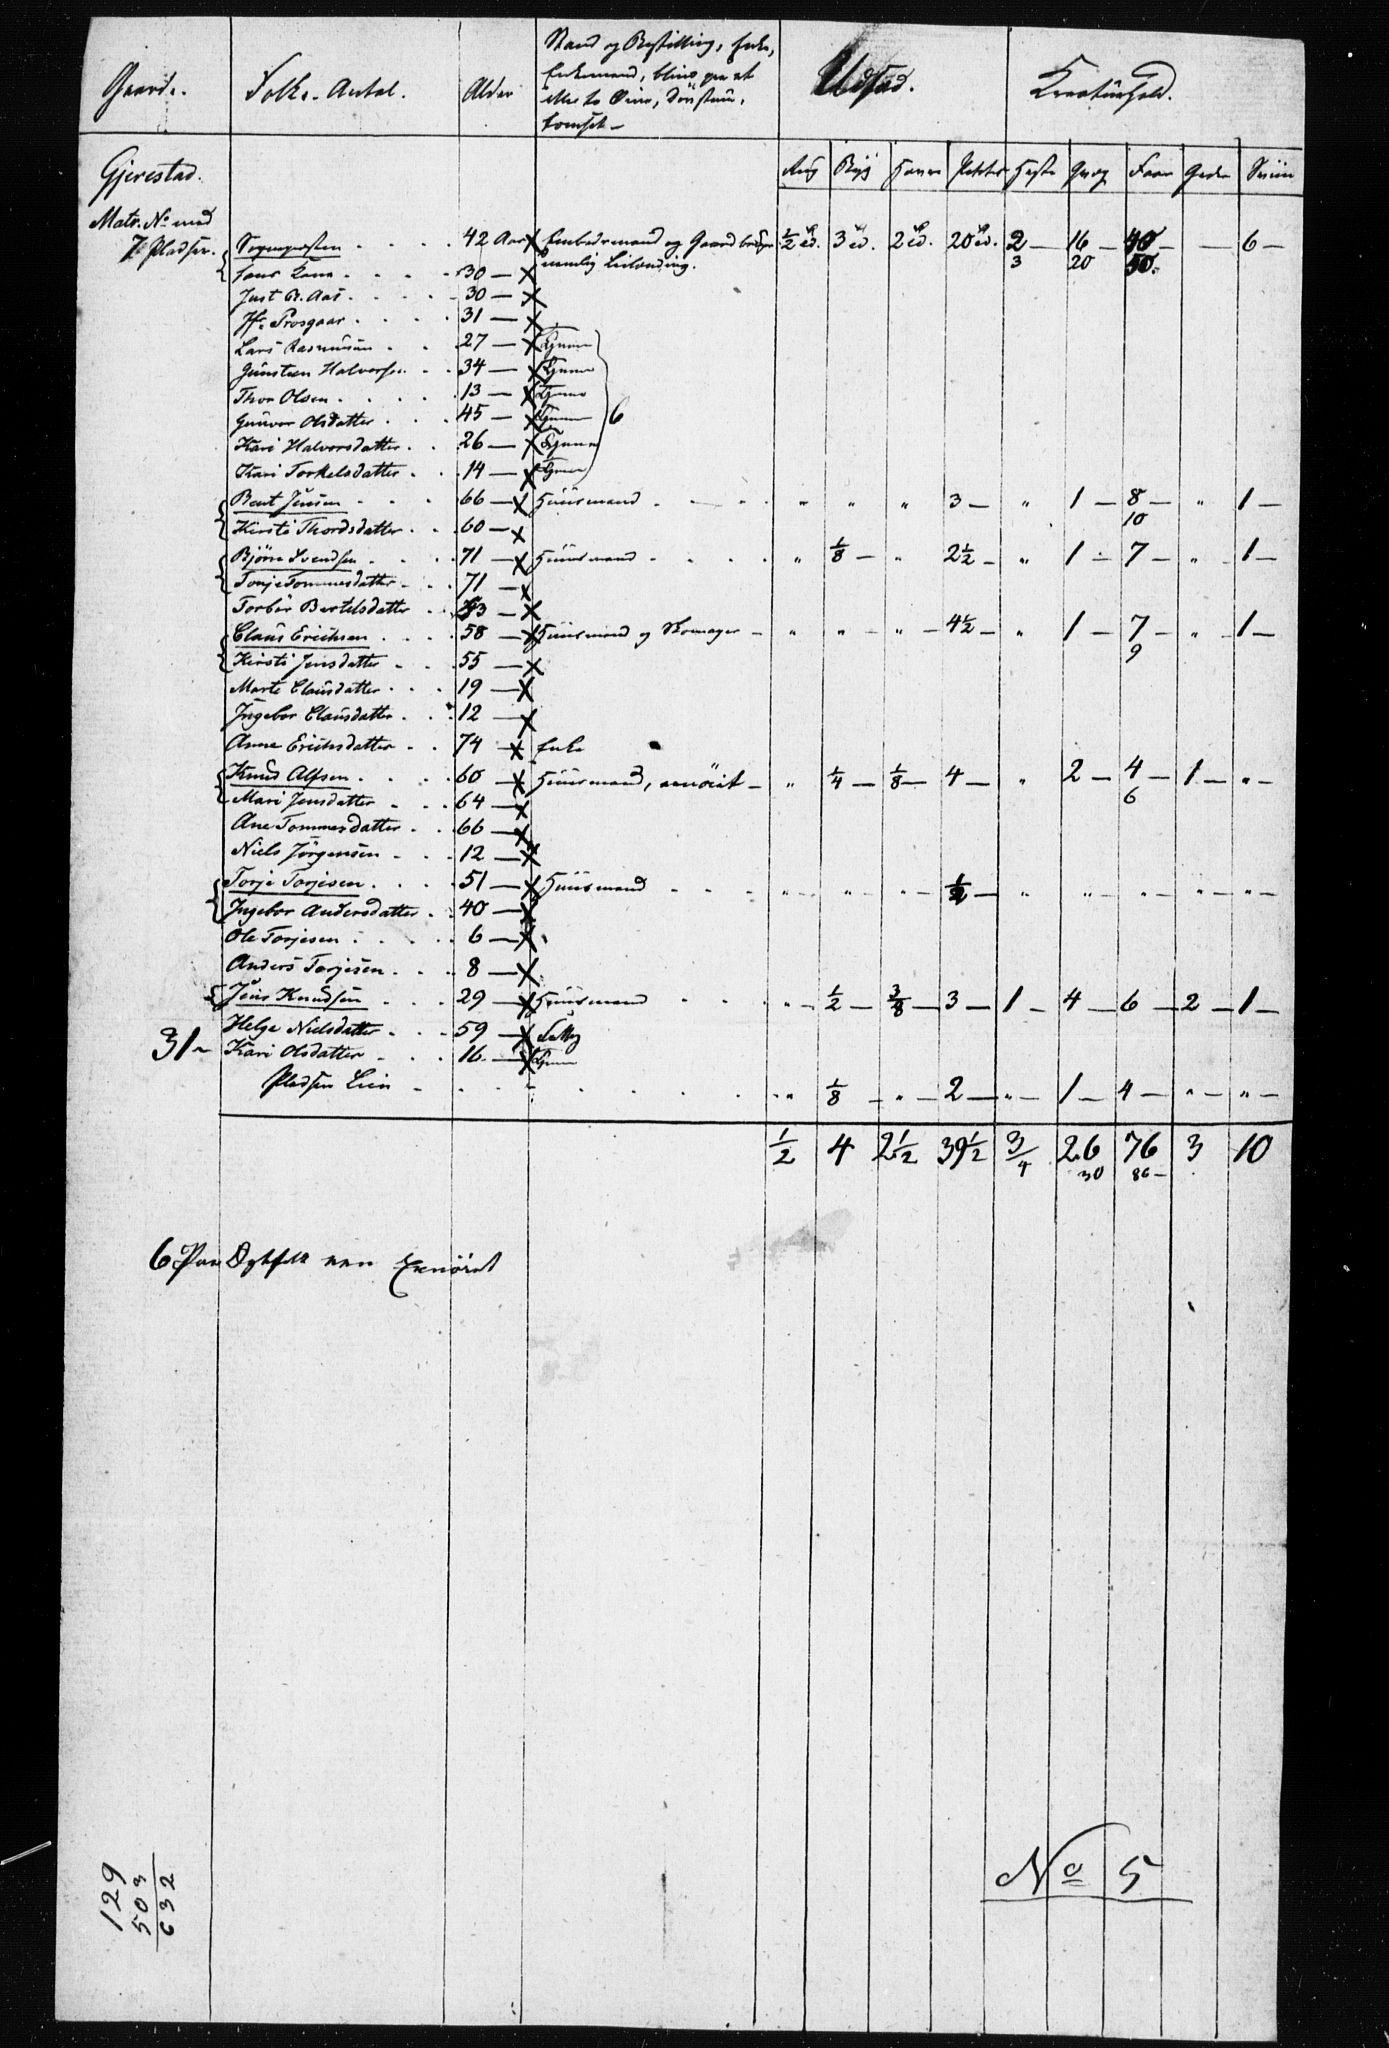 Gaarde. Folke-Antal. Alder Stand og Bestilling, Enke, Udsæd. Kreaturhold.
Enkemand, blind paa et
eller to Øine, Døvstum,
Rug Byg Havre Potetes Heste Qvæg Faar Geder Sviin
Gjerestad.
Matr. No med
7. Pladser. Sognepræsten 42 Aar X Embedsmand og Gaardbruger ½ 3 2 20 2 — 16 — 40 — — 6 —
nemlig Leilænding. 3 20 50.
hans Kone 30 — X
Just B. Aas 30 — X
Jfr Prosgaar 31 — X
Lars Rasmusen 27 — X Tjener
Gunsten Halvorsen 34 — X Tjener
Thor Olsen 13 — X Tjener
Gunvor Olsdatter 45 — X Tjener 6
Kari Halvorsdatter 26 — X Tjener
Kari Torkelsdatter 14 — X Tjener
Bent Jensen 66 — X Huusmand „ „ „ 3 — „ 1 — 8 — „ 1 —
10
Kirsti Thordsdatter 60 — X
Bjørn Svendsen 71 — X Huusmand „ ⅛ — „ 2½ — „ 1 — 7 — „ — 1 —
Tonje Tommesdatter 71 — X
Torbør Bertelsdatter 33 — X
Claus Erichsen 58 — X Huusmand og Skomager — „ „ — „ — 4½ — „ 1 — 7 — „ — 1 —
9
Kirsti Jensdatter 55 — X
Marte Clausdatter 19 — X
Ingebor Clausdatter 12 — X
Anne Erichsdatter 74 — X Enke
Knud Alfsen 60 — X Huusmand, eenøiet — „ ¼ — ⅛ — 4 — „ 2 — 4 — 1 — „ —
6
Mari Jensdatter 64 — X
Ane Tommesdatter 66 — X
Niels Jörgensen 12 — X
Torje Torjesen 51 — X Huusmand „ — „ — „ — ½ — „ „ — „ — „ — „ —
Ingebor Andersdatter 40 — X
Ole Torjesen 6 — X
Anders Torjesen 8 — X
Jens Knudsen 29 — X Huusmand „ — ½ — ⅜ — 3 — 1 — 4 — 6 — 2 — 1 —
Helge Nielsdatter 59 — X
31 ~ Kari Olsdatter 16 — X Tjener
Pladsen Lien „ ⅛ — „ — 2 — „ — 1 — 4 — „ — „ —
½ 4 2½ 39½ 3/4 26 76 3 10
30 86 —
6 Paa een Eenøiet
No 5
129
503
632